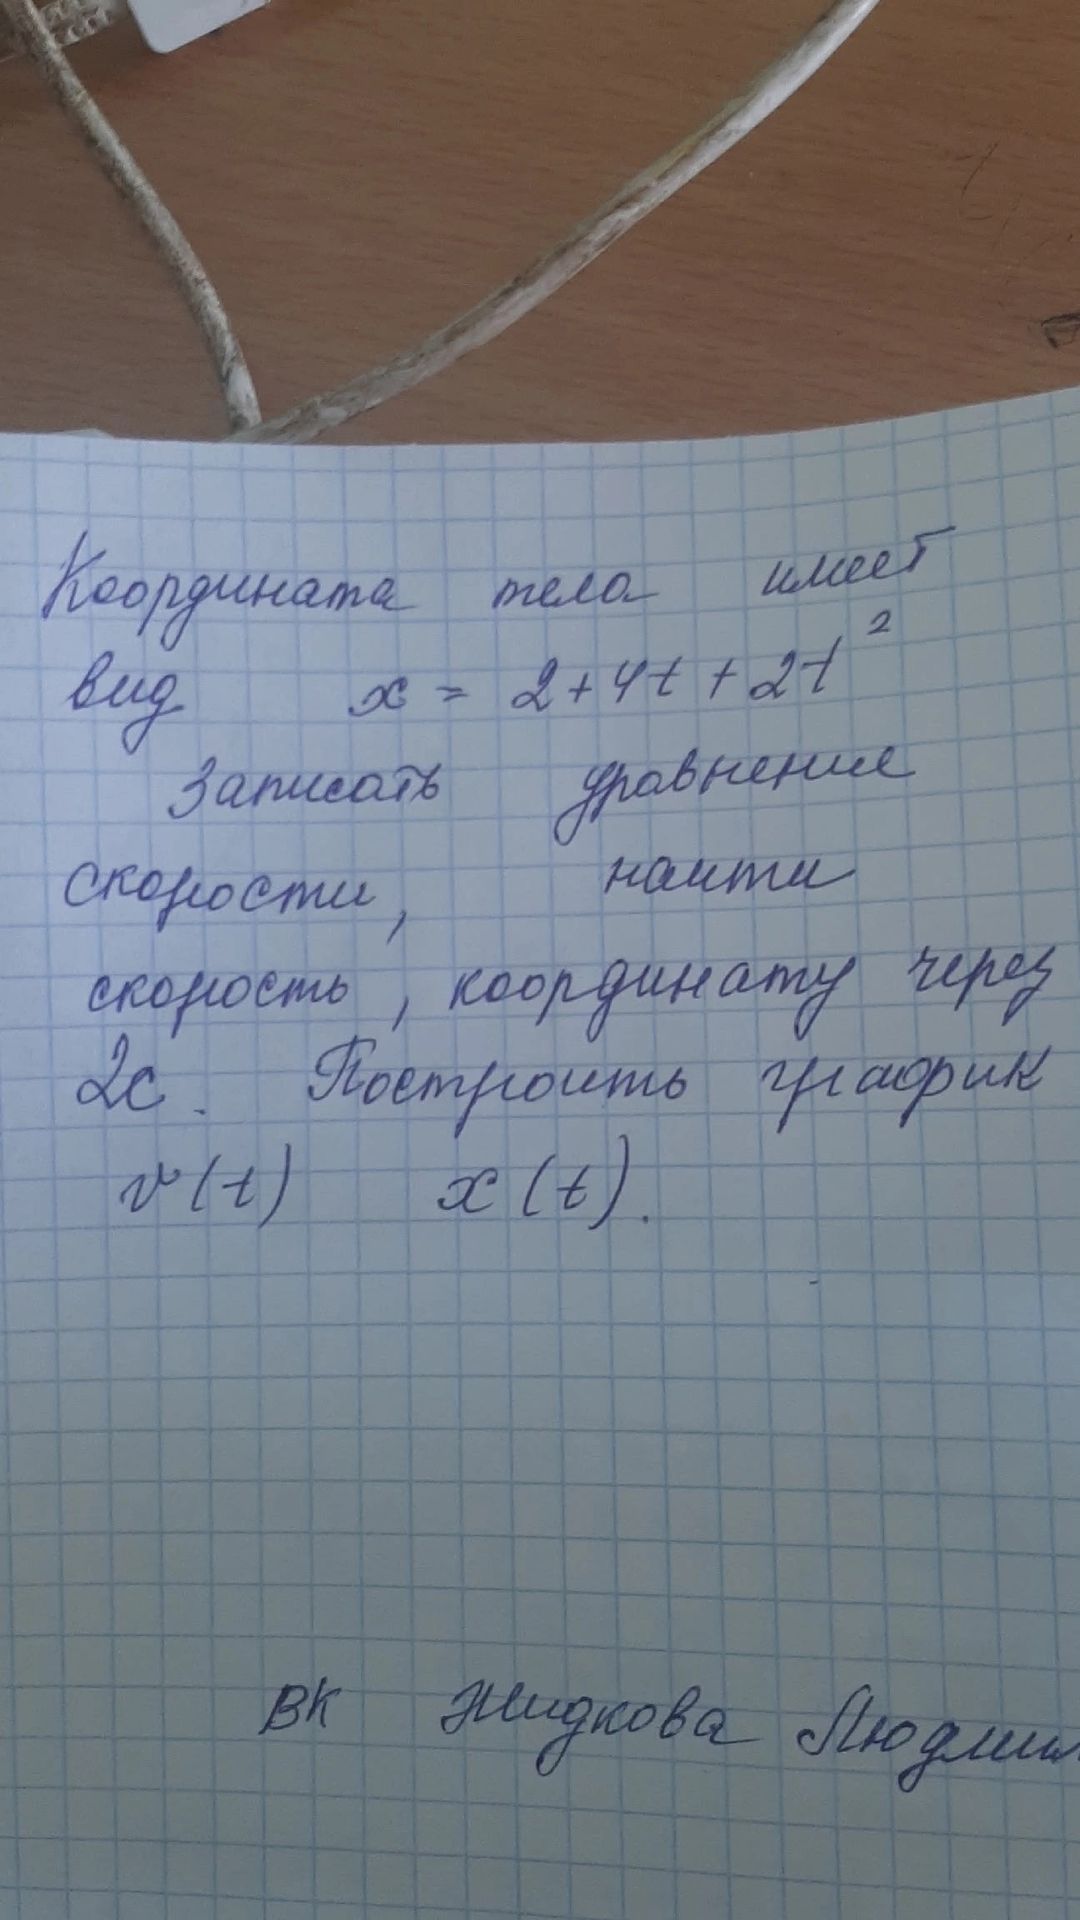 Координата тела имеет
вид x = 2 + 4t + 2t²
Записать уравнение
скорости, наити
скорость, координату через
2с. Построить график
v(t) x(t).
ВК Жидкова Людмил